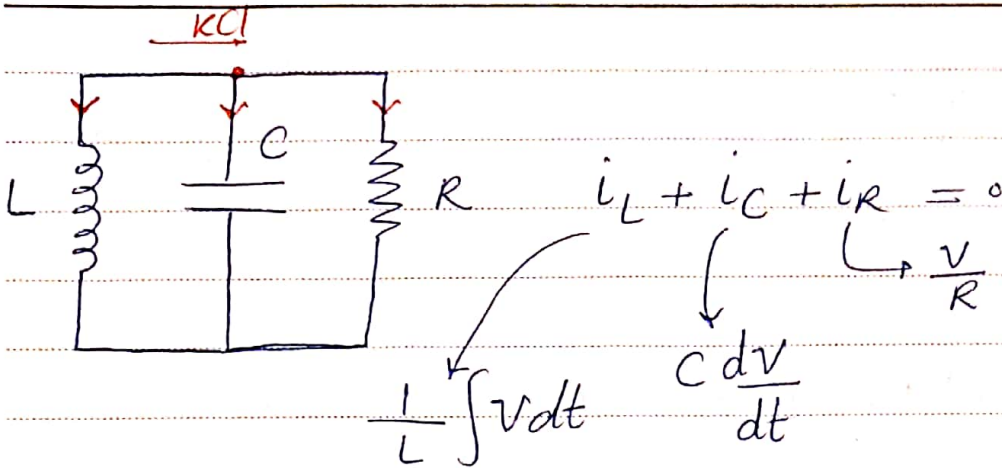 KCl
C
L
R
i_L + i_C + i_R = 0
V/R
C dV/dt
1/L ∫ V dt